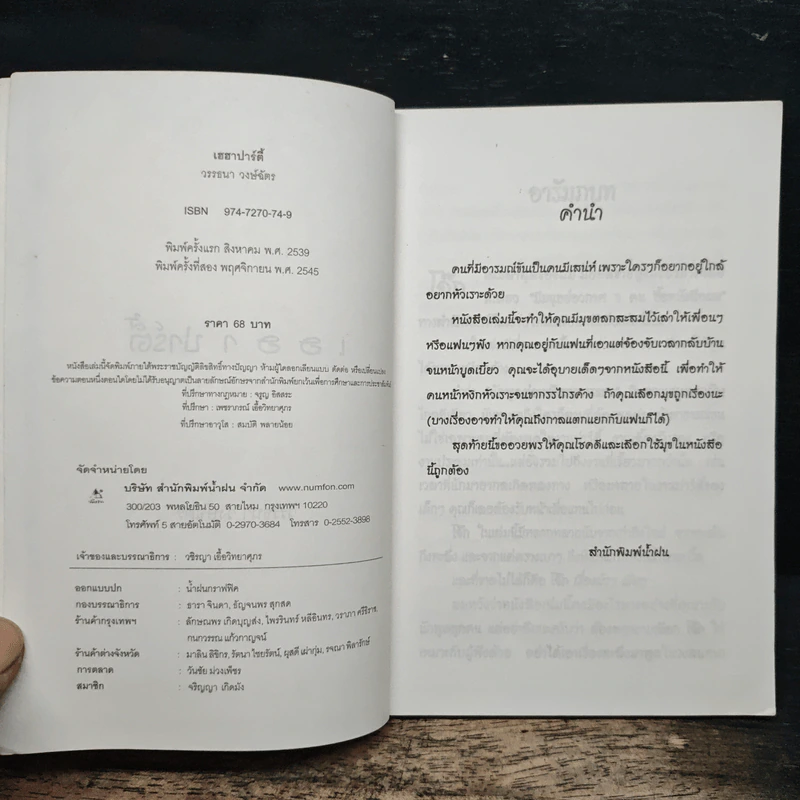 เฮฮาปาร์ตี้
วรรธนา วงษ์ฉัตร
ISBN 974-7270-74-9
พิมพ์ครั้งแรก สิงหาคม พ.ศ. 2539
พิมพ์ครั้งที่สอง พฤศจิกายน พ.ศ. 2545
ราคา 68 บาท
หนังสือเล่มนี้จัดพิมพ์ภายใต้พระราชบัญญัติลิขสิทธิ์ทางปัญญา ห้ามผู้ใดลอกเลียนแบบ ดัดต่อ หรือเปลี่ยนแปลง
ข้อความตอนหนึ่งตอนใดโดยไม่ได้รับอนุญาตเป็นลายลักษณ์อักษรจากสำนักพิมพ์ยกเว้นเพื่อการศึกษาและการประชาสัมพันธ์
ที่ปรึกษาทางกฎหมาย : จรูญ อิสสระ
ที่ปรึกษา : เพชราภรณ์ เอื้อวิทยาศุภร
ที่ปรึกษาอาวุโส : สมบัติ พลายน้อย
จัดจำหน่ายโดย
บริษัท สำนักพิมพ์น้ำฝน จำกัด www.numfon.com
300/203 พหลโยธิน 50 สายไหม กรุงเทพฯ 10220
โทรศัพท์ 5 สายอัตโนมัติ 0-2970-3684 โทรสาร 0-2552-3898
เจ้าของและบรรณาธิการ : วชิรญา เอื้อวิทยาศุภร
ออกแบบปก : น้ำฝนกราฟฟิค
กองบรรณาธิการ : ธารา จินดา, ธัญจนพร สุกสด
ร้านค้ากรุงเทพฯ : ลักษณพร เกิดบุญส่ง, ไพรรินทร์ หลีอินทร, วราภา ศรีวิราช,
กนกวรรณ แก้วกาญจน์
ร้านค้าต่างจังหวัด : มาลิน ลิขิกร, รัตนา ไชยรัตน์, ผุสดี เผ่ากุ่ม, รจณา พิลารักษ์
การตลาด : วันชัย ม่วงเพ็ชร
สมาชิก : จริญญา เกิดมั่ง
คำนำ
คนที่มีอารมณ์ขันเป็นคนมีเสน่ห์ เพราะใครๆก็อยากอยู่ใกล้
อยากหัวเราะด้วย
หนังสือเล่มนี้จะทำให้คุณมีมุขตลกสะสมไว้เล่าให้เพื่อนๆ
หรือแฟนๆฟัง หากคุณอยู่กับแฟนที่เอาแต่จ้องจับเวลากลับบ้าน
จนหน้าบูดเบี้ยว คุณจะได้อุบายเด็ดๆจากหนังสือนี้ เพื่อทำให้
คนหน้าหงิกหัวเราะจนขากรรไกรค้าง ถ้าคุณเลือกมุขถูกเรื่องนะ
(บางเรื่องอาจทำให้คุณถึงกาลแตกแยกกับแฟนก็ได้)
สุดท้ายนี้ขออวยพรให้คุณโชคดีและเลือกใช้มุขในหนังสือ
นี้ถูกต้อง
สำนักพิมพ์น้ำฝน